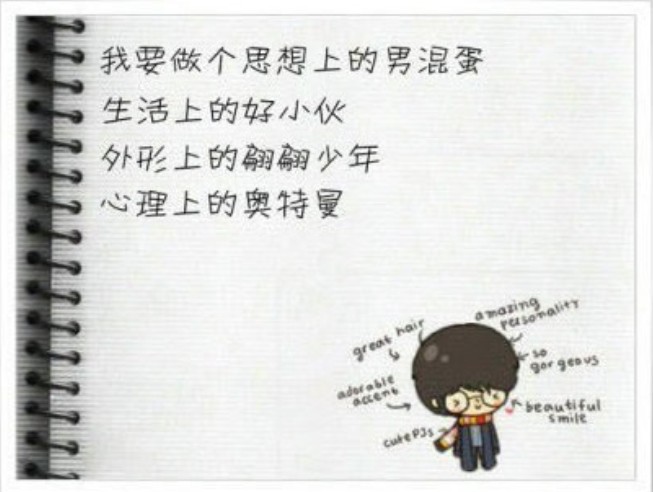 我要做个思想上的男混蛋
生活上的好小伙
外形上的翩翩少年
心理上的奥特曼
great hair
amazing
personality
so
gorgeous
adorable
accent
beautiful
smile
cute PJs